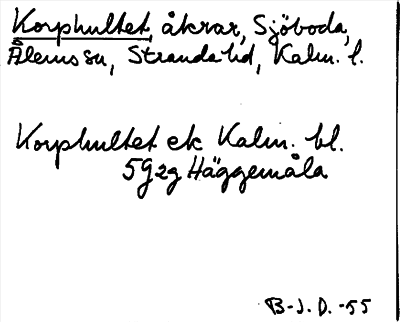 Korphultet, åkrar, Sjöboda,
Ålems sn, Stranda hd, Kalm. l.
Korphultet ek Kalm. bl.
5G2g Häggemåla
B-J. D. -55